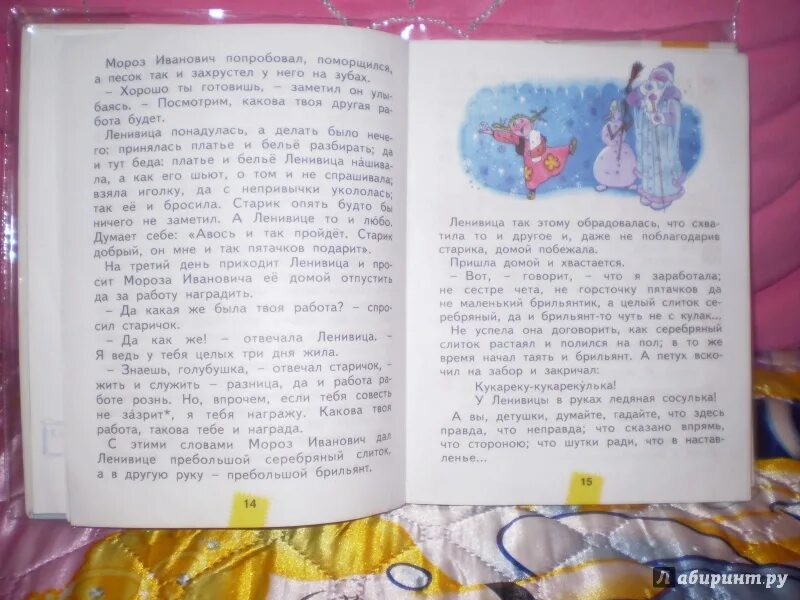 Мороз Иванович попробовал, поморщился,
а песок так и захрустел у него на зубах.
– Хорошо ты готовишь, – заметил он улы-
баясь. – Посмотрим, какова твоя другая ра-
бота будет.
Ленивица понадулась, а делать было нече-
го: принялась платье и бельё разбирать; да
и тут беда: платье и бельё Ленивица на́шива-
ла, а как его шьют, о том и не спрашивала;
взяла иголку, да с непривычки укололась;
так её и бросила. Старик опять будто бы
ничего не заметил. А Ленивице то и любо.
Думает себе: «Авось и так пройдёт. Старик
добрый, он мне и так пятачков подарит».
На третий день приходит Ленивица и про-
сит Мороза Ивановича её домой отпустить
да за работу наградить.
– Да какая же была твоя работа? – спро-
сил старичок.
– Да как же! – отвечала Ленивица. –
Я ведь у тебя целых три дня жила.
– Знаешь, голубушка, – отвечал старичок, –
жить и служить – разница, да и работа ра-
боте рознь. Но, впрочем, если тебя совесть
не за́зрит*, я тебя награжу. Какова твоя
работа, такова тебе и награда.
С этими словами Мороз Иванович дал
Ленивице пребольшой серебряный слиток,
а в другую руку – пребольшой брильянт.
14
Ленивица так этому обрадовалась, что схва-
тила то и другое и, даже не поблагодарив
старика, домой побежала.
Пришла домой и хвастается.
– Вот, – говорит, – что я заработала;
не сестре чета, не горсточку пятачков да
не маленький брильянтик, а целый слиток се-
ребряный, да и брильянт-то чуть не с кулак...
Не успела она договорить, как серебряный
слиток растаял и полился на пол; в то же
время начал таять и брильянт. А петух вско-
чил на забор и закричал:
Кукареку-кукареку́лька!
У Ленивицы в руках ледяная сосулька!
А вы, детушки, думайте, гадайте, что здесь
правда, что неправда; что сказано впрямь,
что стороною; что шутки ради, что в настав-
ленье...
15
Лабиринт.ру